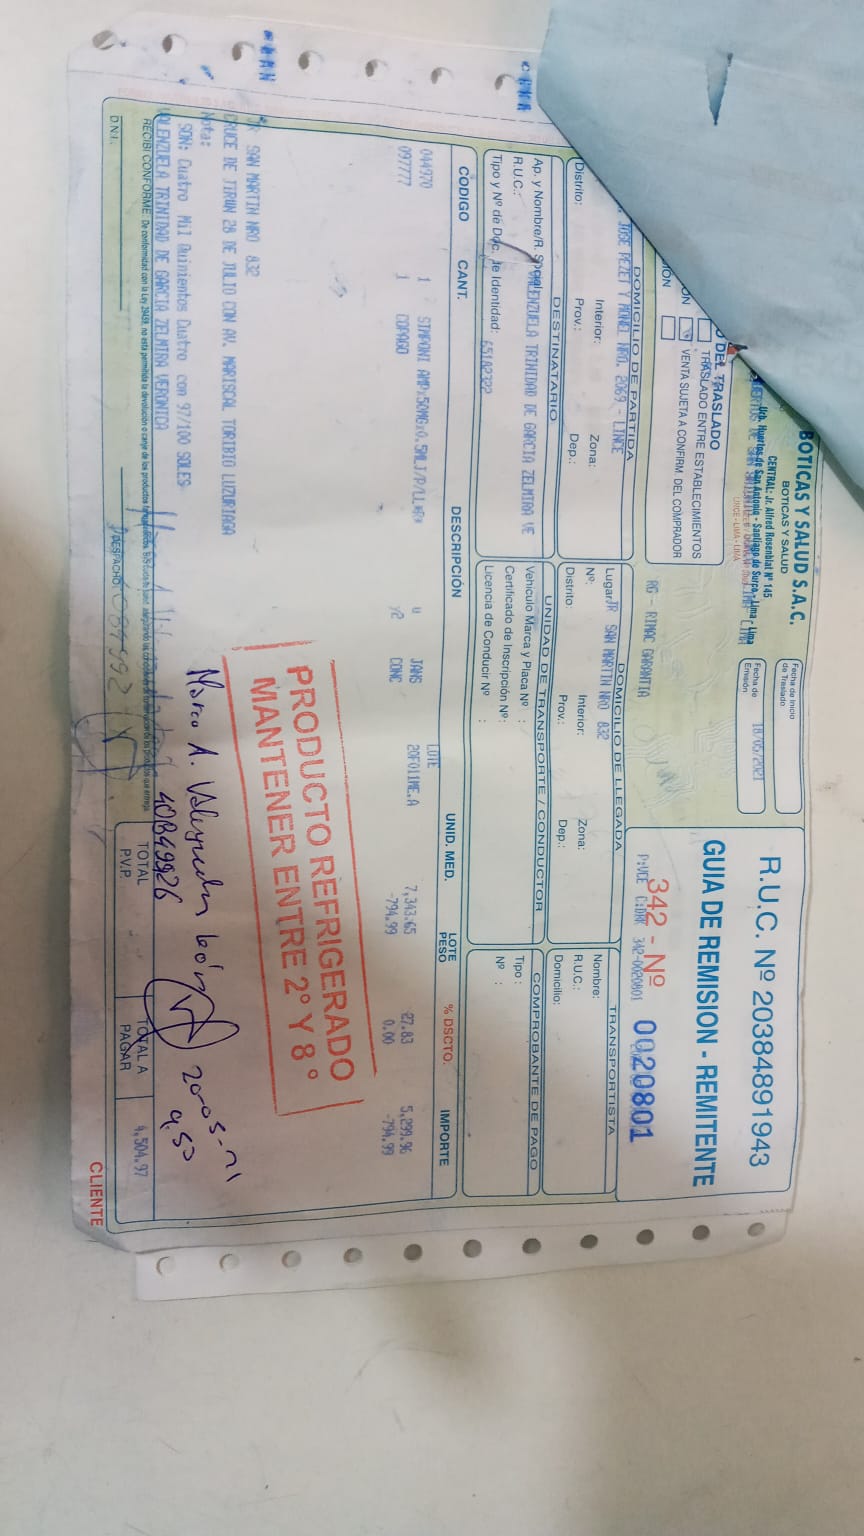 BOTICAS Y SALUD S.A.C.
BOTICAS Y SALUD
CENTRAL: Jr. Alfred Rosenblat Nº 145
Urb. Huertos de San Antonio - Santiago de Surco - Lima - Lima
LINCE - LIMA - LIMA
Fecha de Inicio de Traslado
Fecha de Emisión 18/05/2021
R.U.C. Nº 20384891943
GUIA DE REMISION - REMITENTE
342 - Nº 0020801
342-0020801
DEL TRASLADO
TRASLADO ENTRE ESTABLECIMIENTOS
VENTA SUJETA A CONFIRM. DEL COMPRADOR
RG - RIMAC GARANTIA
DOMICILIO DE PARTIDA
JOSE PEZET Y MONEL NRO. 2069 - LINCE
Interior:
Zona:
Distrito:
Prov.:
Dep.:
DOMICILIO DE LLEGADA
Lugar: JR SAN MARTIN NRO 832
Nº:
Interior:
Zona:
Distrito:
Prov.:
Dep.:
TRANSPORTISTA
Nombre:
R.U.C.:
Domicilio:
DESTINATARIO
Ap. y Nombre/R. Social VALENZUELA TRINIDAD DE GARCIA ZELMIRA VE
R.U.C.:
Tipo y Nº de Doc. de Identidad:
UNIDAD DE TRANSPORTE / CONDUCTOR
Vehiculo Marca y Placa Nº :
Certificado de Inscripción Nº :
Licencia de Conducir Nº :
COMPROBANTE DE PAGO
Tipo :
Nº :
CODIGO CANT. DESCRIPCIÓN UNID. MED. LOTE PESO % DSCTO. IMPORTE
LOTE
044970 1 SIMPONI AMPx50MGx0.5MLJ/P/LLx6Rx U JANS 20F011ME.A 7,343.65 27.83 5,299.96
097777 1 COPAGO y2 CONC -794.99 0.00 -794.99
PRODUCTO REFRIGERADO
MANTENER ENTRE 2° Y 8°
JR SAN MARTIN NRO 832
CRUCE DE JIRUN 28 DE JULIO CON AV. MARISCAL TORIBIO LUZURIAGA
Nota:
SON: Cuatro Mil Quinientos Cuatro con 97/100 SOLES
VALENZUELA TRINIDAD DE GARCIA ZELMIRA VERONICA
20-05-21
9:50
40849926
RECIBI CONFORME:
D.N.I.
DESPACHO
TOTAL P.V.P.
TOTAL A PAGAR
4,504.97
CLIENTE